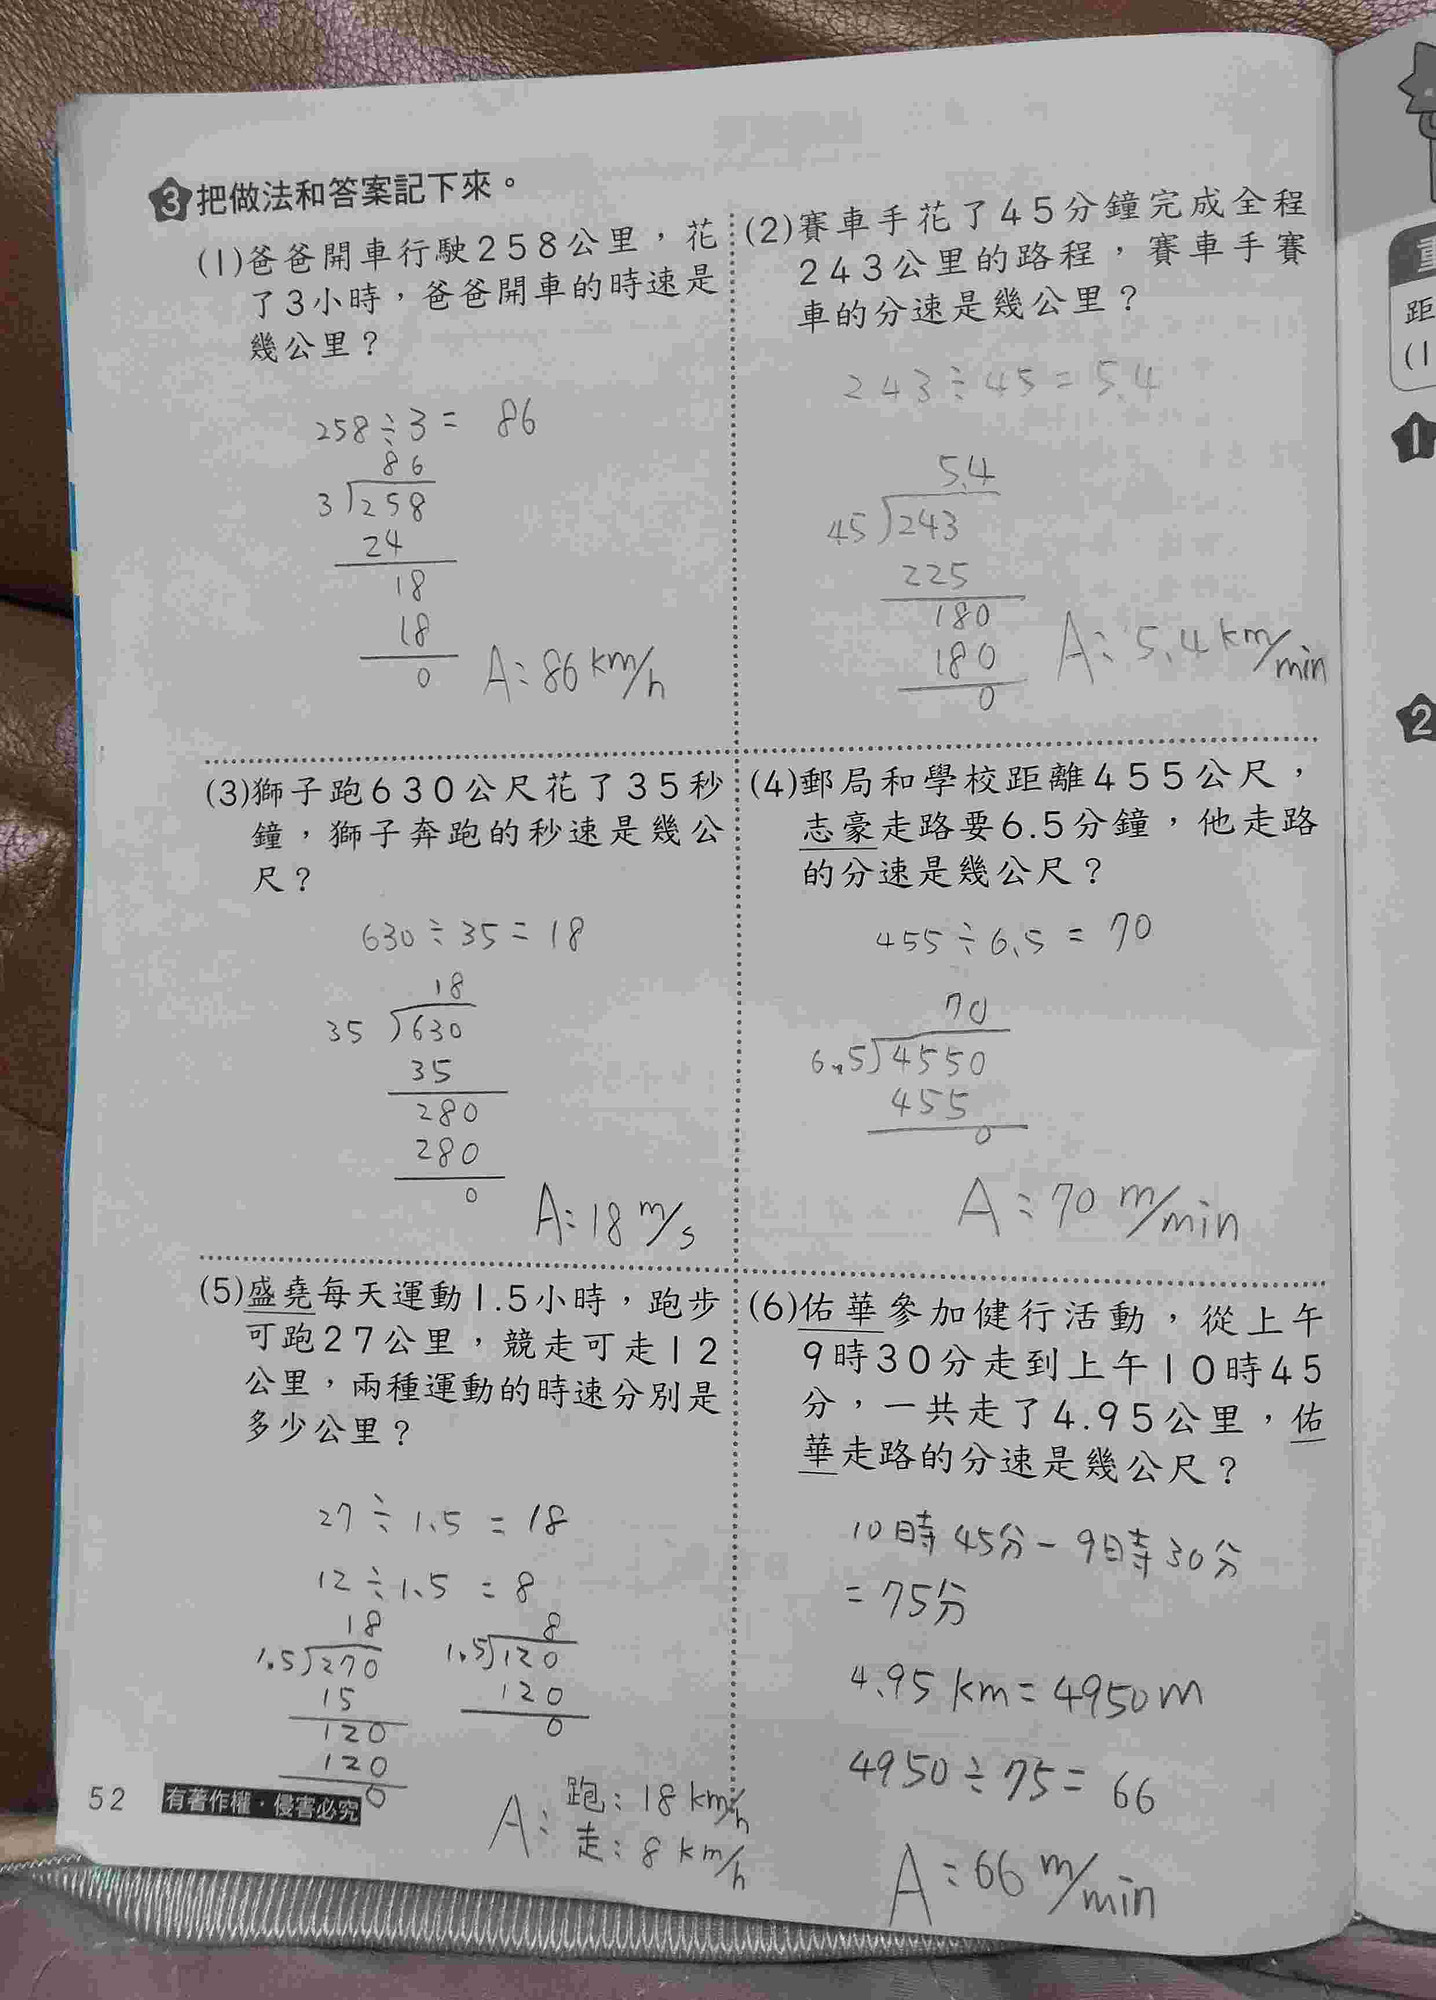 3 把做法和答案記下來。
(1)爸爸開車行駛258公里，花
了3小時，爸爸開車的時速是
幾公里？
258÷3= 86
86
3 258
24
18
18
0
A:86 km/h
(2)賽車手花了45分鐘完成全程
243公里的路程，賽車手賽
車的分速是幾公里？
243÷45=5.4
5.4
45 243
225
180
180
0
A:5.4 km/min
(3)獅子跑630公尺花了35秒
鐘，獅子奔跑的秒速是幾公
尺？
630÷35=18
18
35 630
35
280
280
0
A:18 m/s
(4)郵局和學校距離455公尺，
志豪走路要6.5分鐘，他走路
的分速是幾公尺？
455÷6.5=70
70
6.5 4550
455
0
A:70 m/min
(5)盛堯每天運動1.5小時，跑步
可跑27公里，競走可走12
公里，兩種運動的時速分別是
多少公里？
27÷1.5=18
12÷1.5=8
18
1.5 270
15
120
120
0
8
1.5 120
120
0
A: 跑:18 km/h
走:8 km/h
(6)佑華參加健行活動，從上午
9時30分走到上午10時45
分，一共走了4.95公里，佑
華走路的分速是幾公尺？
10時45分-9時30分
=75分
4.95 km=4950m
4950÷75= 66
A:66 m/min
52 有著作權·侵害必究
距
(1
1
2